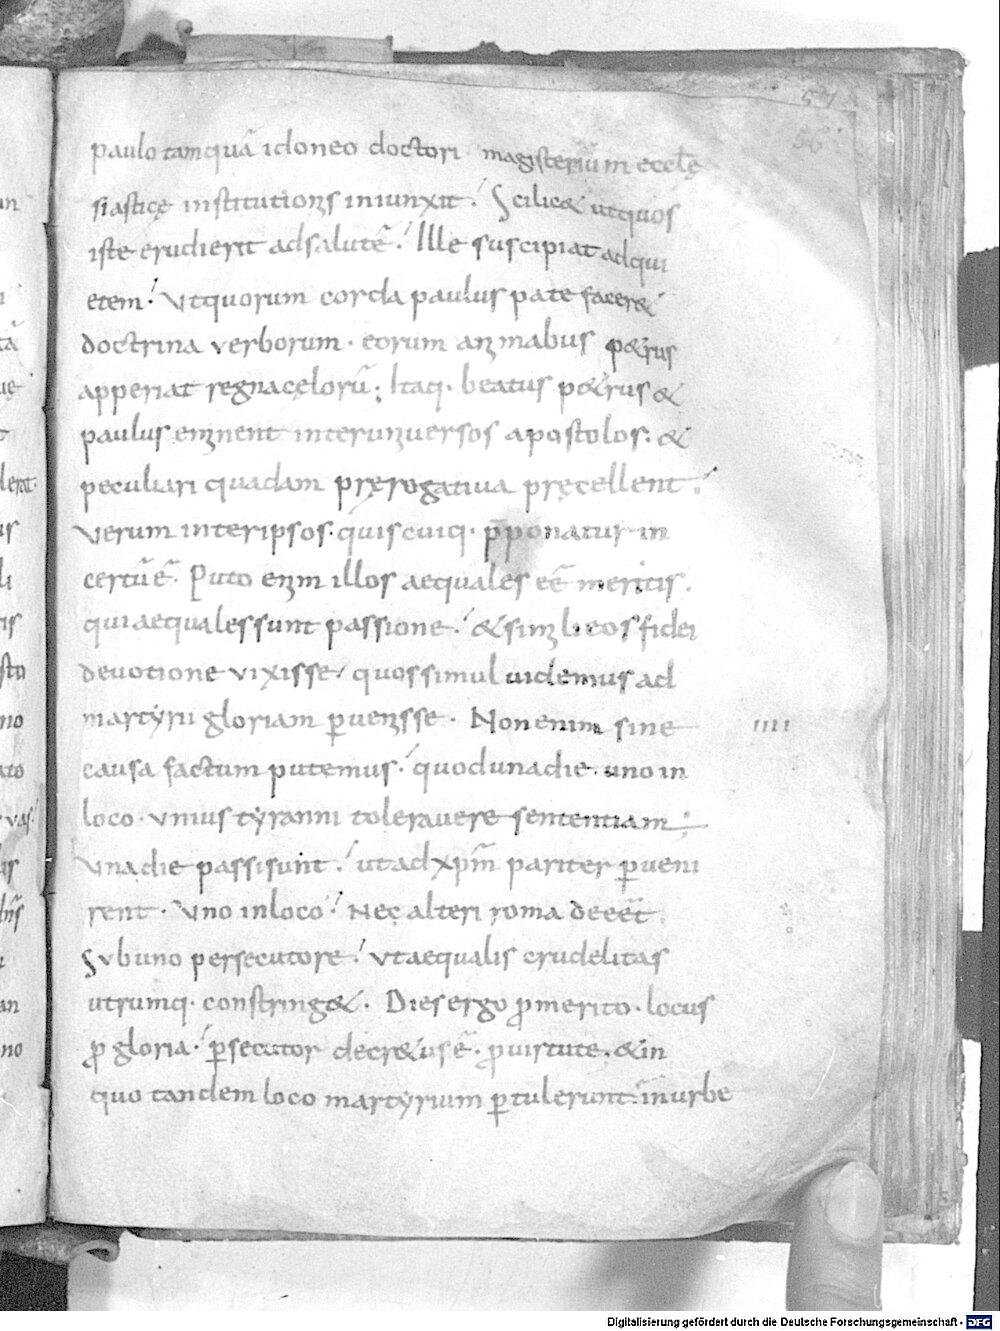 57
56
paulo tamquā idoneo doctori magisterium eccle
siasticę institutionis iniunxit. Scilic& utquos
iste erudierit adsalutē. Ille suscipiat adqui
etem. Vtquorum corda paulus patefacer&
doctrina verborum. eorum animabus p&rus
apperiat regnacęlorū; Itaq. beatus p&rus &
paulus eminent interuniuersos apostolos. &
peculiari quadam pręrogatiua pręcellent.
Verum interipsos. quiscuiq. p̄ponatur in
certū ē. Puto enim illos aequales eē meritis.
quiaequalessunt passione. &simili eosfidei
devotione vixisse. quossimul uidemus ad
martyrii gloriam ꝑuenisse. Nonenim sine
causa factum putemus. quodunadie. uno in
loco. vnius tyranni toleravere sententiam.
Vnadie passisunt. utadxp̄m pariter ꝑueni
rent. Vno inloco. Nec alteri roma deeēt.
Sub uno persecutore. vtaequalis crudelitas
utrumq. constring&. Dies ergo ꝓmerito. locus
ꝓ gloria. ꝑsecutor decr&us ē. ꝓ uirtute. &in
quo tandem loco martyrium ꝑtulerunt. inurbe
IIII
Digitalisierung gefördert durch die Deutsche Forschungsgemeinschaft - DFG